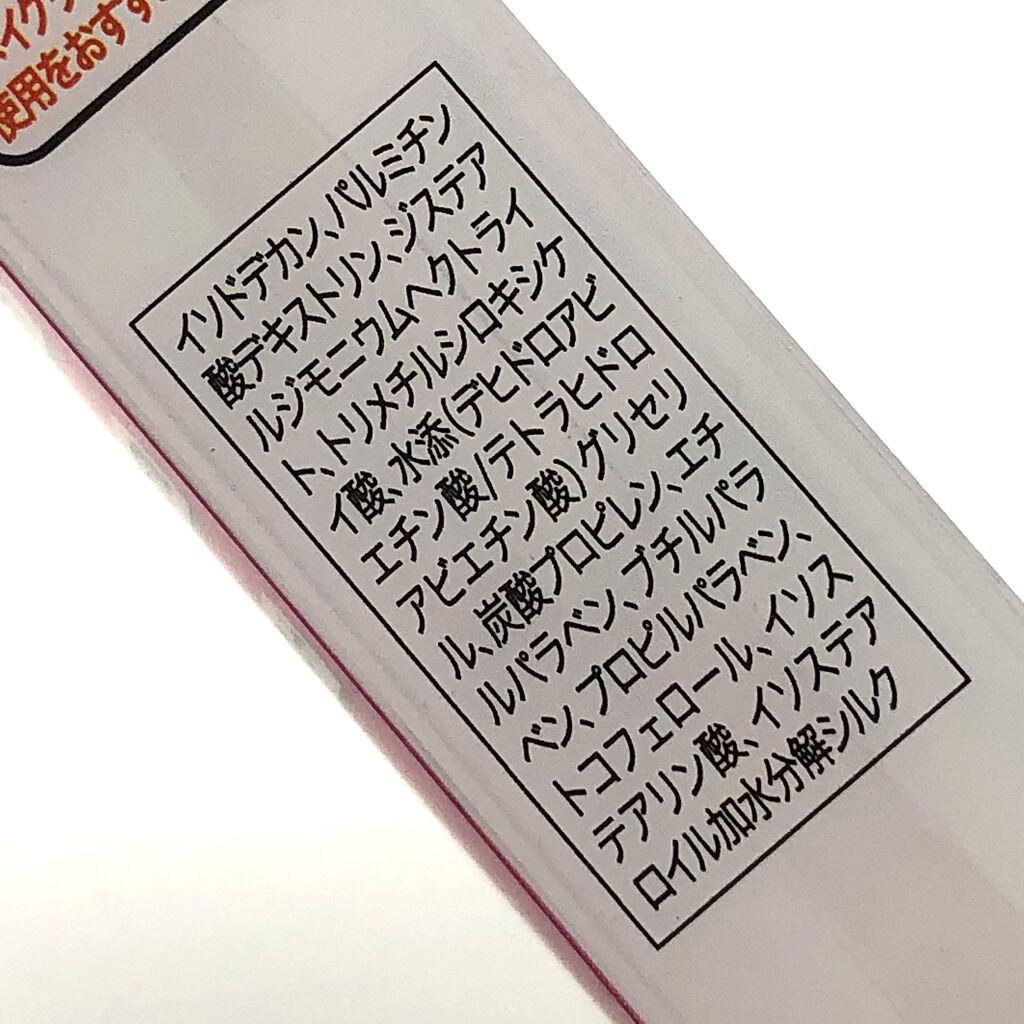 使用をおすす
イソドデカン、パルミチン
酸デキストリン、ジステア
ルジモニウムヘクトライ
ト、トリメチルシロキシケ
イ酸、水添(デヒドロアビ
エチン酸/テトラヒドロ
アビエチン酸)グリセリ
ル、炭酸プロピレン、エチ
ルパラベン、ブチルパラ
ベン、プロピルパラベン、
トコフェロール、イソス
テアリン酸、イソステア
ロイル加水分解シルク